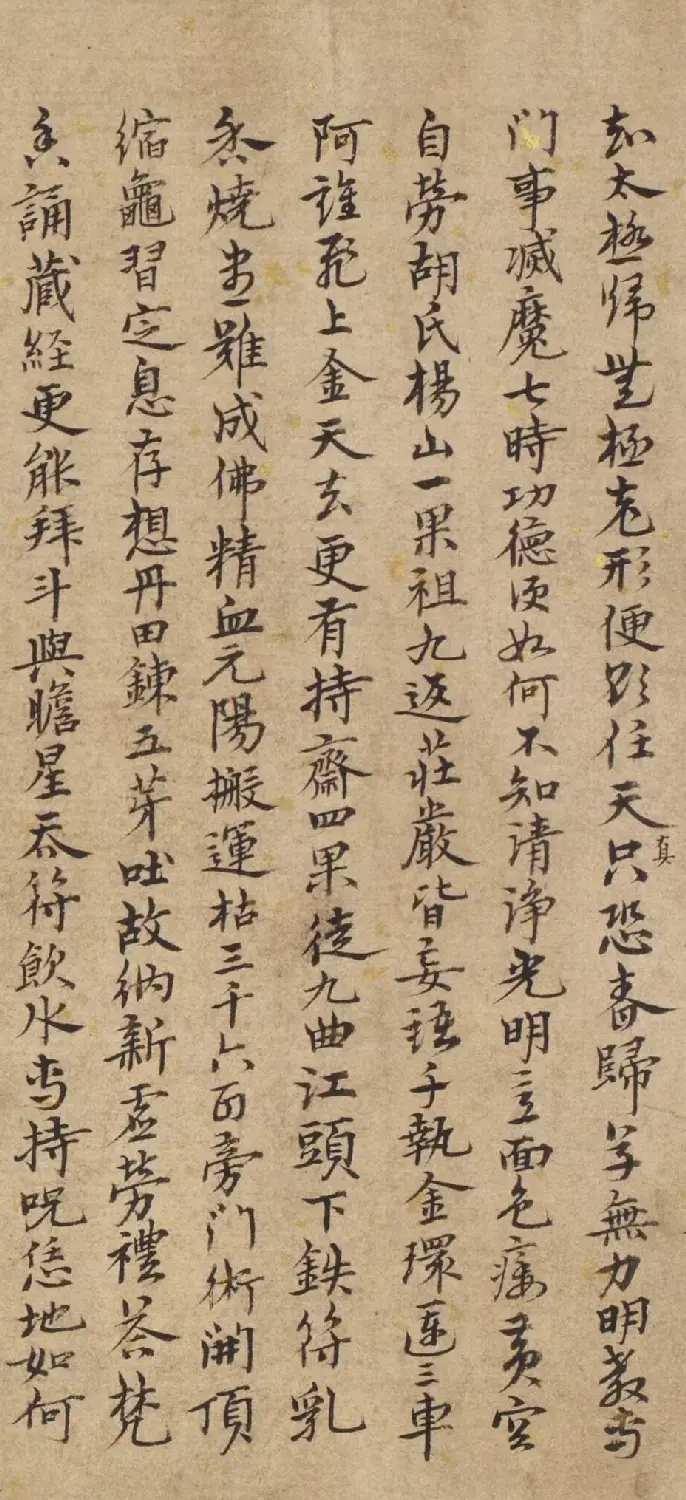 却太極歸無極老形便影任天真只恐春歸草無力明教專
門事滅魔七時功德便如何不知清淨光明意面色痿黃空
自勞胡氏楊山一果祖九返莊嚴皆妄語手執金環運三車
阿誰飛上金天去更有持齋四果徒九曲江頭下鉄符乳
香燒盡難成佛精血元陽搬運枯三千六百旁門術開頂
縮龜習定息存想丹田鍊五芽吐故納新虛勞禮荅梵
香誦蔵経更能拜斗與瞻星吞符飲水專持呪恁地如何